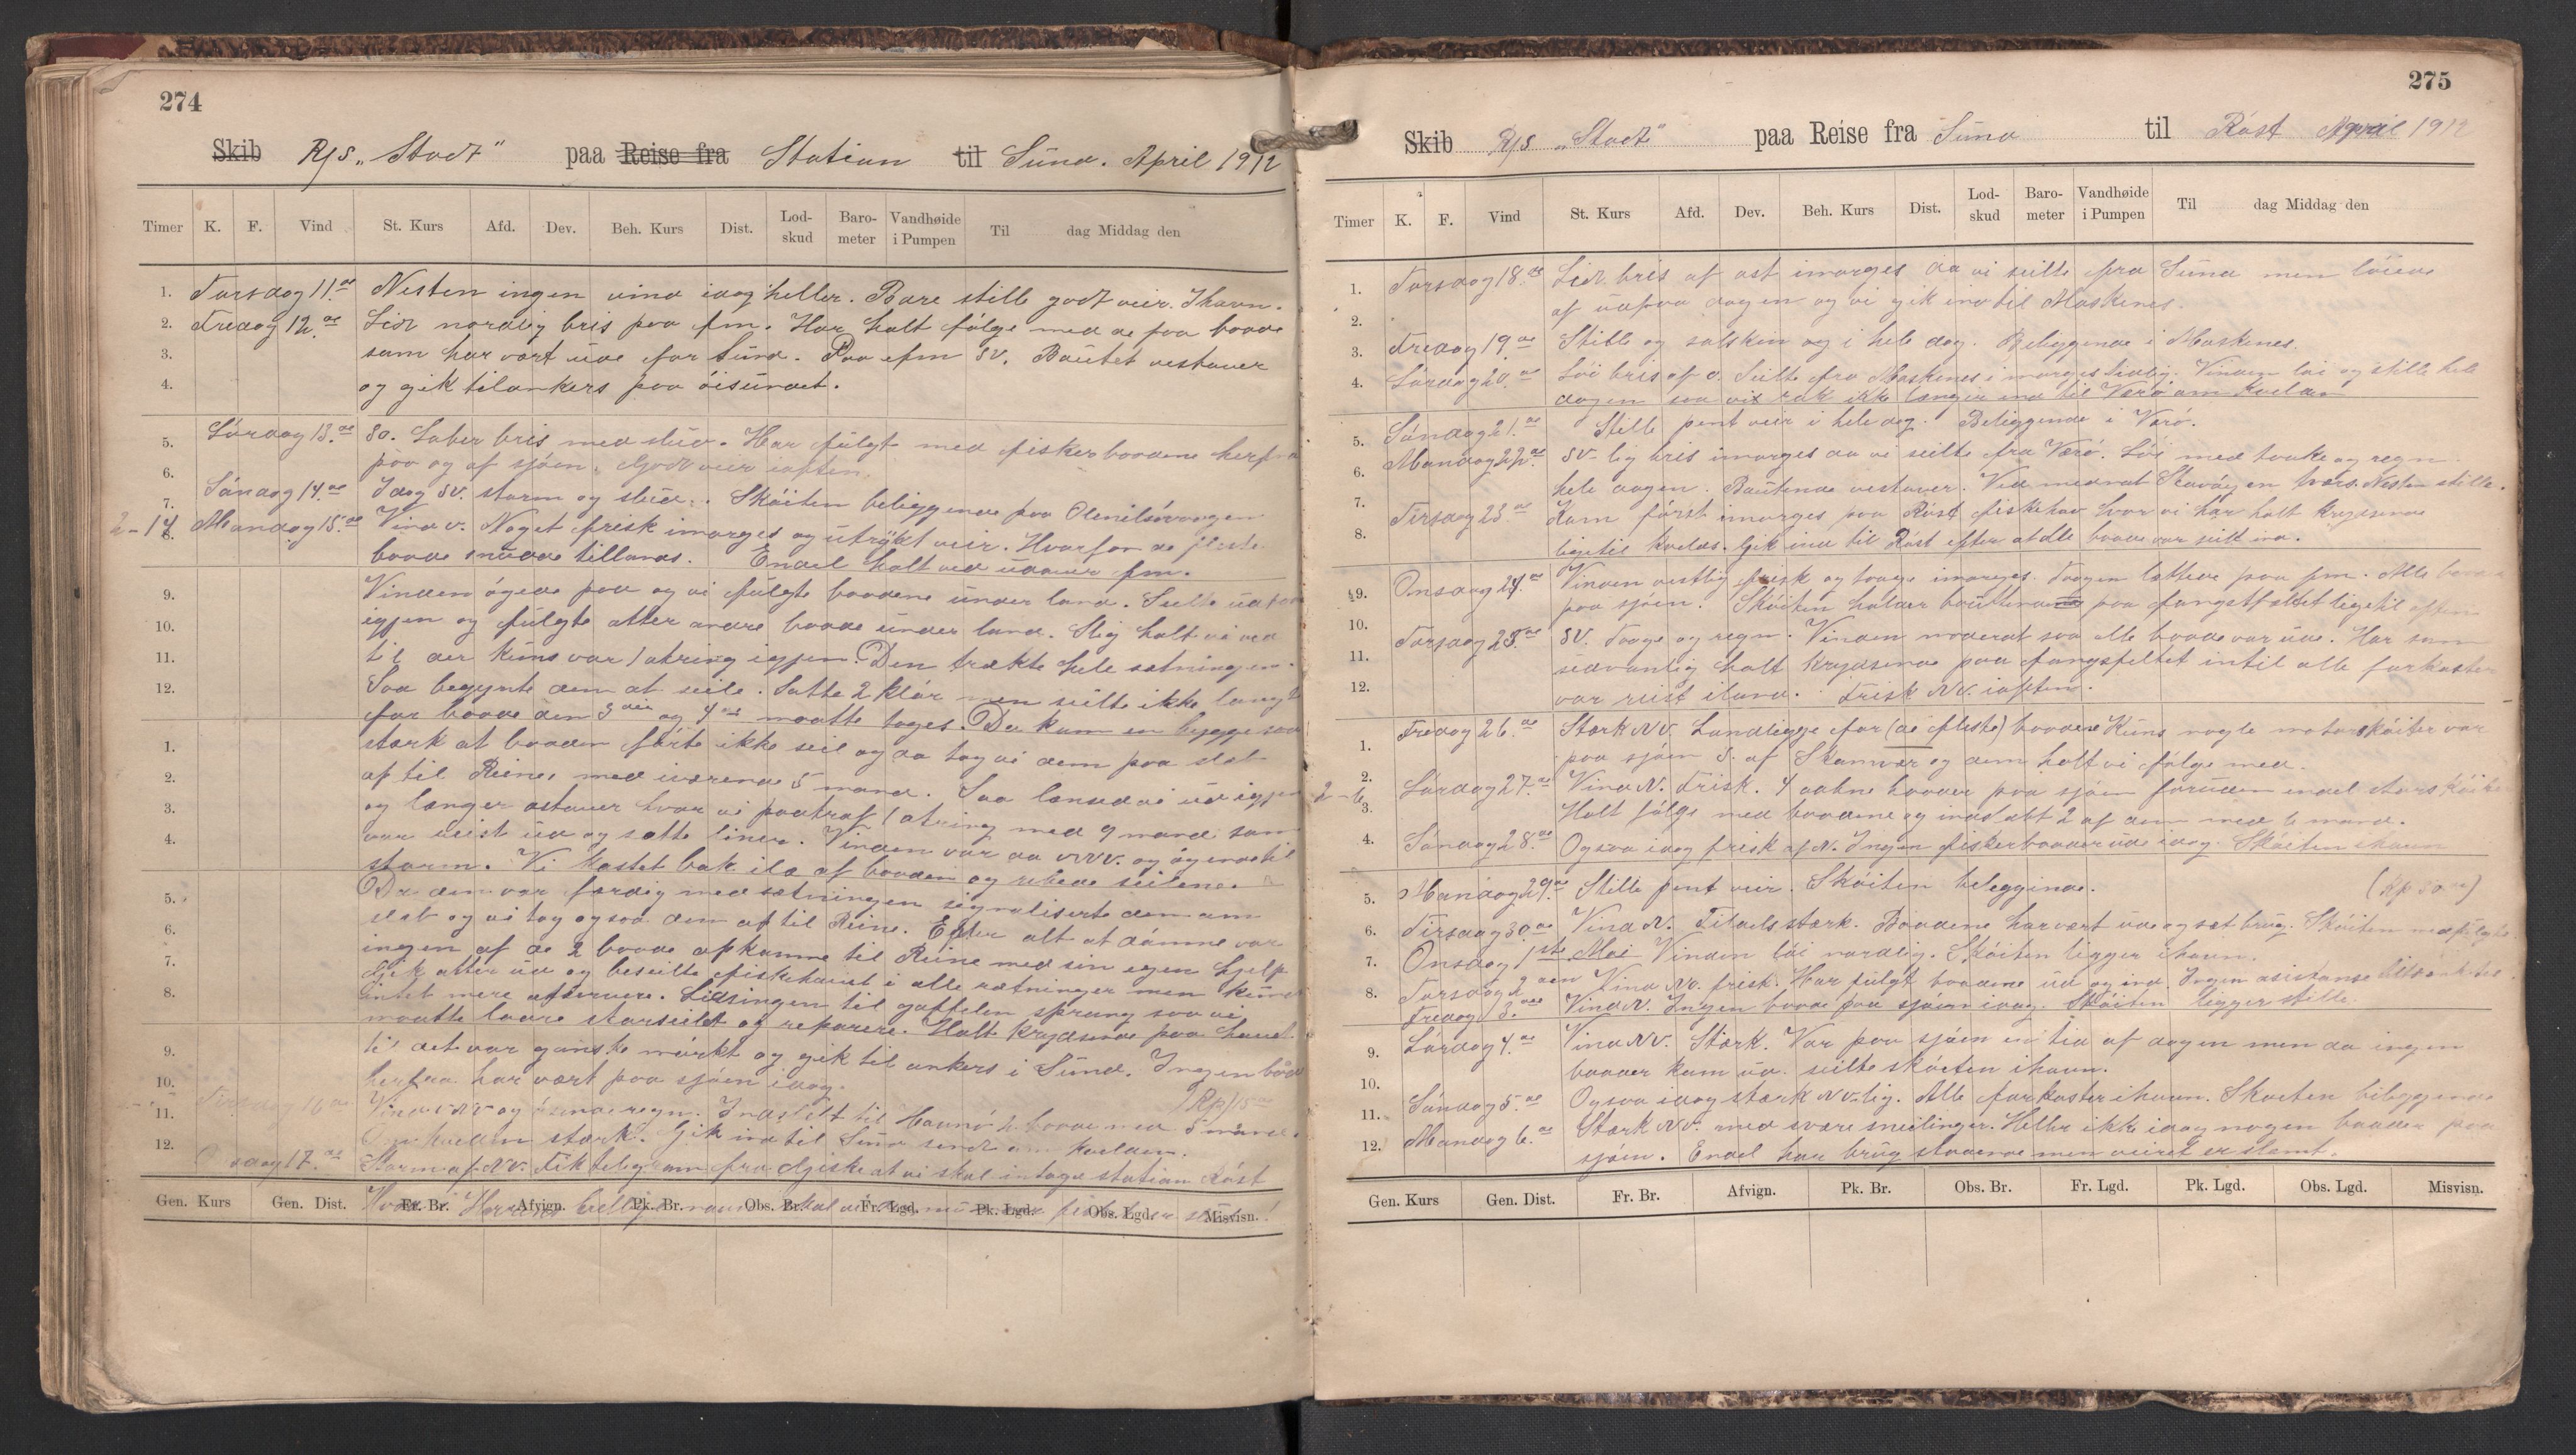 274
Skib R/S „Stadt" paa Reise fra Station til Sund. April 1912
Timer K. F. Vind St. Kurs Afd. Dev. Beh. Kurs Dist. Lod-skud Baro-meter Vandhøide i Pumpen Til dag Middag den
1. Torsdag 11.te Nesten ingen vind idag heller. Bare stille godt veir. Ihavn.
2. Fredag 12.te Lidt nordlig bris paa fm. Har holt følge med de faa baade
3. som har vært ude for Sund. Paa efm SV. Bautet vestover
4. og gik tilankers paa öisundet.
5. Lördag 13.de SO. Laber bris med slud. Har fulgt med fiskerbaadene herfra
6. paa og af sjöen. Godt veir iaften.
7. Söndag 14.de Idag SV. storm og slud. Sköiten beliggende paa Olenilsövaagen
2-14 8. Mandag 15.de Vind v. Noget frisk imorges og utrykt veir. Hvorfor de fleste
baade snudde tillands. Endel holt ved udover fm.
9. Vinden ögede paa og vi fulgte baadene under land. Seilte ud
10. igjen og fulgte atter andre baade under land. Slig holt vi ved
11. til der kuns var 1 otring igjen. Den trækte hele sætningen.
12. Saa begynte dem at seile. Satte 2 klör men seilte ikke langt
för baade den 3die og 4de maatte tages. Da kom en bygge saa
1. stærk at baaden förte ikke seil og da tog vi dem paa slæb
2. af til Reine, med iværende 5 mand. Saa lænsed vi ud igjen
3. og længer ostover hvor vi paatraf 1 otring med 9 mand som
4. var reist ud og sætte liner. Vinden var da VNV. og ögende til
storm. Vi kastet bak ilæ af baaden og rebede seilene.
5. Da dem var færdig med sætningen signaliserte dem om
6. slæb og vi tog ogsaa dem af til Reine. Efter alt at dömme var
7. ingen af de 2 baade afkomme til Reine med sin egen hjelp.
8. Gik atter ud og beseilte fiskehavet i alle retninger men kunde
intet mere observere. Lidsingen til gaffelen sprang saa vi
maatte laare storseilet og reparere. Holt krydsende paa havet
9. til det var ganske mörkt og gik til ankers i Sund. Ingen baad
10. herfra har vært paa sjöen idag. (Rp) 15de
11. Tirsdag 16.de Vind VNV og ösende regn. Indseilt til Havnö 2 baade med 5 mand.
12. Om kvelden stærk. Gik ind til Sund sendt om kvelden.
Onsdag 17.de Storm af NV. Fik telegram fra Gjiske at vi skal indtage station Röst
Gen. Kurs Gen. Dist. Fr. Br. Afvign. Pk. Br. Obs. Br. Fr. Lgd. Pk. Lgd. Obs. Lgd. Misvisn.
275
Skib R/S „Stadt" paa Reise fra Sund til Röst April 1912
Timer K. F. Vind St. Kurs Afd. Dev. Beh. Kurs Dist. Lod-skud Baro-meter Vandhøide i Pumpen Til dag Middag den
1. Torsdag 18.de Lidt bris af ost imorges da vi seilte fra Sund men löiede
2. af udpaa dagen og vi gik ind til Moskenes.
3. Fredag 19.de Stille og solskin og i hele dag. Beliggende i Moskenes.
4. Lördag 20.de Löi bris af O. Seilte fra Moskenes imorges tidlig. Vinden löi og stille hele
dagen saa vi rak ikke længer ind til Værö om kvelden
5. Söndag 21.de Stille pent veir i hele dag. Beliggende i Værö.
6. Mandag 22.de SV-lig bris imorges da vi seilte fra Værö. Löi med taake og regn
hele dagen. Bautende vestover. Ved midnat Stavöyen tværs. Nesten stille.
7. Tirsdag 23.de Kom först imorges paa Röst fiskehav hvor vi har holt krydsende
8. ligetil kvelds. Gik ind til Röst efter at alle baade var seilt ind.
9. Onsdag 24.de Vinden vestlig frisk og taage imorges. Taagen lættede paa fm. Alle baade
paa sjöen. Sköiten holder bautende paa fangstfeltet ligetil aften
10. Torsdag 25.de SV. Taage og regn. Vinden moderat saa alle baade var ude. Har som
11. sedvanlig holt krydsende paa fangsfeltet intil alle farkoster
12. var reist iland. Frisk NV. iaften.
1. Fredag 26.de Stærk NV. Landligge for (de fleste) baadene. Kuns nogle motorsköiter var
paa sjöen S. af Skomvær og dem holt vi følge med.
2. 2-6 Lördag 27.de Vind N. Frisk. 4 aabne baader paa sjöen foruden endel storsköiter
3. Holt følge med baadene og indslæbt 2 af dem med 6 mand.
4. Söndag 28.de Ogsaa idag frisk af N. Ingen fiskerbaader ude idag. Sköiten ihavn
5. Mandag 29.de Stille pent veir. Sköiten beliggende. (Rp 30te)
6. Tirsdag 30.de Vind N. Tildels stærk. Baadene har vært ude og sat brug. Sköiten medfulgte
7. Onsdag 1ste Mai Vinden löi nordlig. Sköiten ligger ihavn.
8. Torsdag 2den Vind NV. frisk. Har fulgt baadene ud og ind. Ingen asistanse
Fredag 3.die Vind N. Ingen baade paa sjöen idag. Sköiten ligger stille.
9. Lördag 4.de Vind NV. Stærk. Var paa sjöen en tid af dagen men da ingen
10. baader kom ud seilte sköiten ihavn.
11. Söndag 5.de Ogsaa idag stærk NV-lig. Alle farkoster ihavn. Sköiten beliggende
12. Mandag 6.de Stærk NV. med svære sneilinger. Heller ikke idag nogen baader paa
sjöen. Endel har brug staaende men veiret er slemt.
Gen. Kurs Gen. Dist. Fr. Br. Afvign. Pk. Br. Obs. Br. Fr. Lgd. Pk. Lgd. Obs. Lgd. Misvisn.